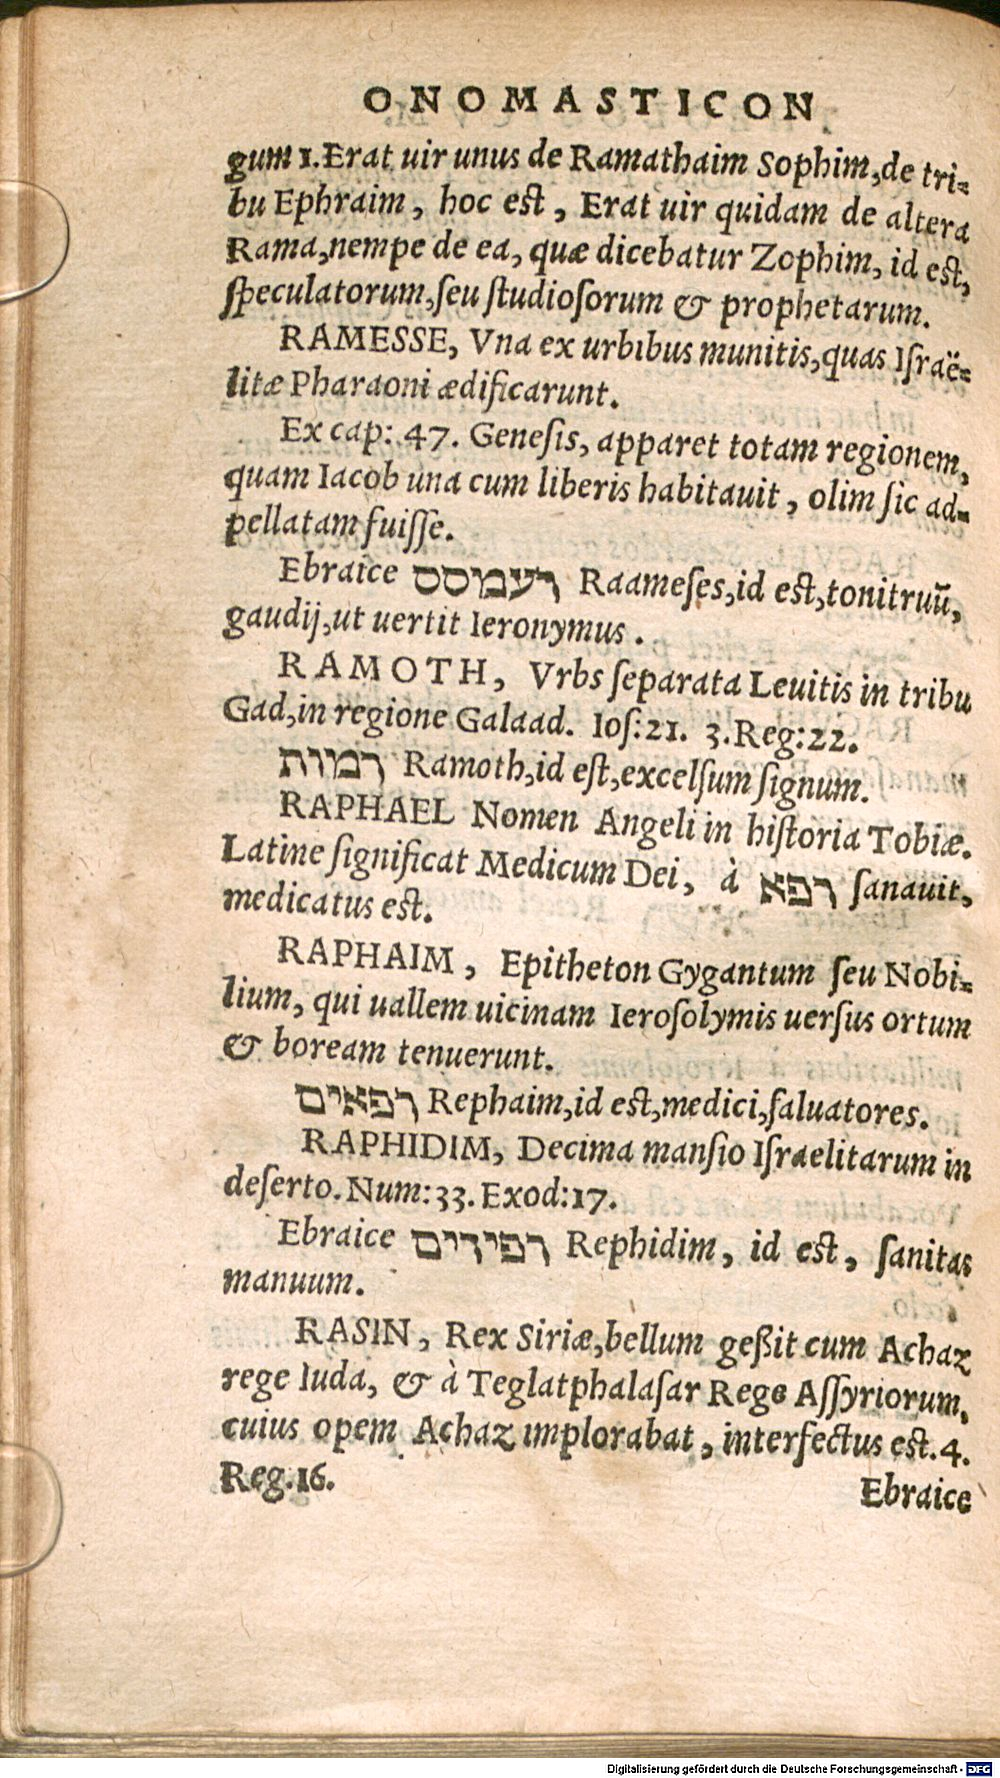 ONOMASTICON
gum 1. Erat uir unus de Ramathaim Sophim, de tri-
bu Ephraim, hoc est, Erat uir quidam de altera
Rama, nempe de ea, quæ dicebatur Zophim, id est,
ſpeculatorum, ſeu ſtudioſorum & prophetarum.
RAMESSE, Vna ex urbibus munitis, quas Iſraë-
litæ Pharaoni ædificarunt.
Ex cap: 47. Geneſis, apparet totam regionem,
quam Iacob una cum liberis habitauit, olim ſic ad-
pellatam fuiſſe.
Ebraice רעמסס Raameſes, id eſt, tonitruū,
gaudij, ut uertit Ieronymus.
RAMOTH, Vrbs ſeparata Leuitis in tribu
Gad, in regione Galaad. Ioſ: 21. 3. Reg: 22.
רמות Ramoth, id eſt, excelſum ſignum.
RAPHAEL Nomen Angeli in hiſtoria Tobiæ.
Latine ſignificat Medicum Dei, à רפא ſanauit,
medicatus eſt.
RAPHAIM, Epitheton Gygantum ſeu Nobi-
lium, qui uallem uicinam Ieroſolymis uerſus ortum
& boream tenuerunt.
רפאים Rephaim, id eſt, medici, ſaluatores.
RAPHIDIM, Decima manſio Iſraelitarum in
deſerto. Num: 33. Exod: 17.
Ebraice רפידים Rephidim, id eſt, ſanitas
manuum.
RASIN, Rex Siriæ, bellum geßit cum Achaz
rege Iuda, & à Teglatphalaſar Rege Aſſyriorum,
cuius opem Achaz implorabat, interfectus eſt. 4.
Reg. 16.
Ebraice
Digitalisierung gefördert durch die Deutsche Forschungsgemeinschaft - DFG